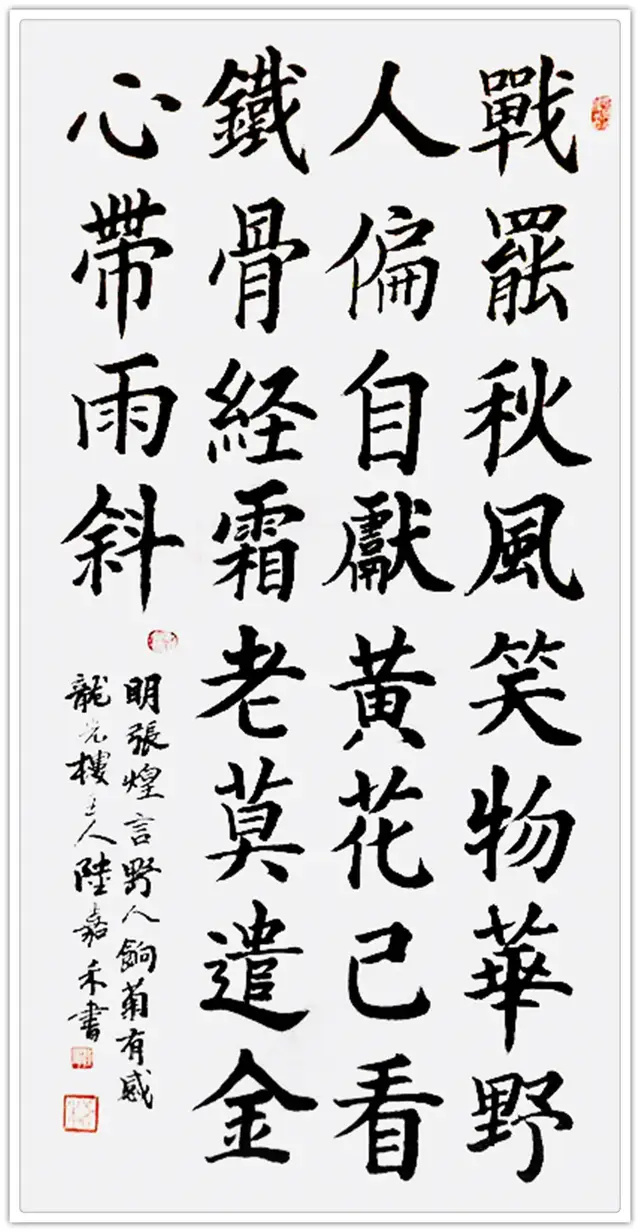 戰罷秋風笑物華野
人偏自獻黃花已看
鐵骨経霜老莫遣金
心帶雨斜
明張煌言野人餉菊有感
龍光樓主人陸嘉禾書